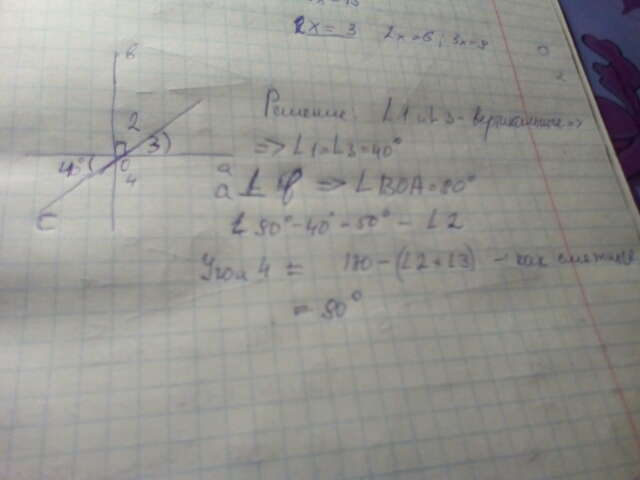 2x = 3 2x=6; 3x=9
в
2
3)
40°(
0
4
a
C
Решение: ∠1 и ∠3 - вертикальные =>
=> ∠1=∠3=40°
a ⊥ в => ∠BOA=90°
∠ 90°-40°=50° - ∠2
Угол 4 = 180-(∠2+∠3) - как смежные
= 90°